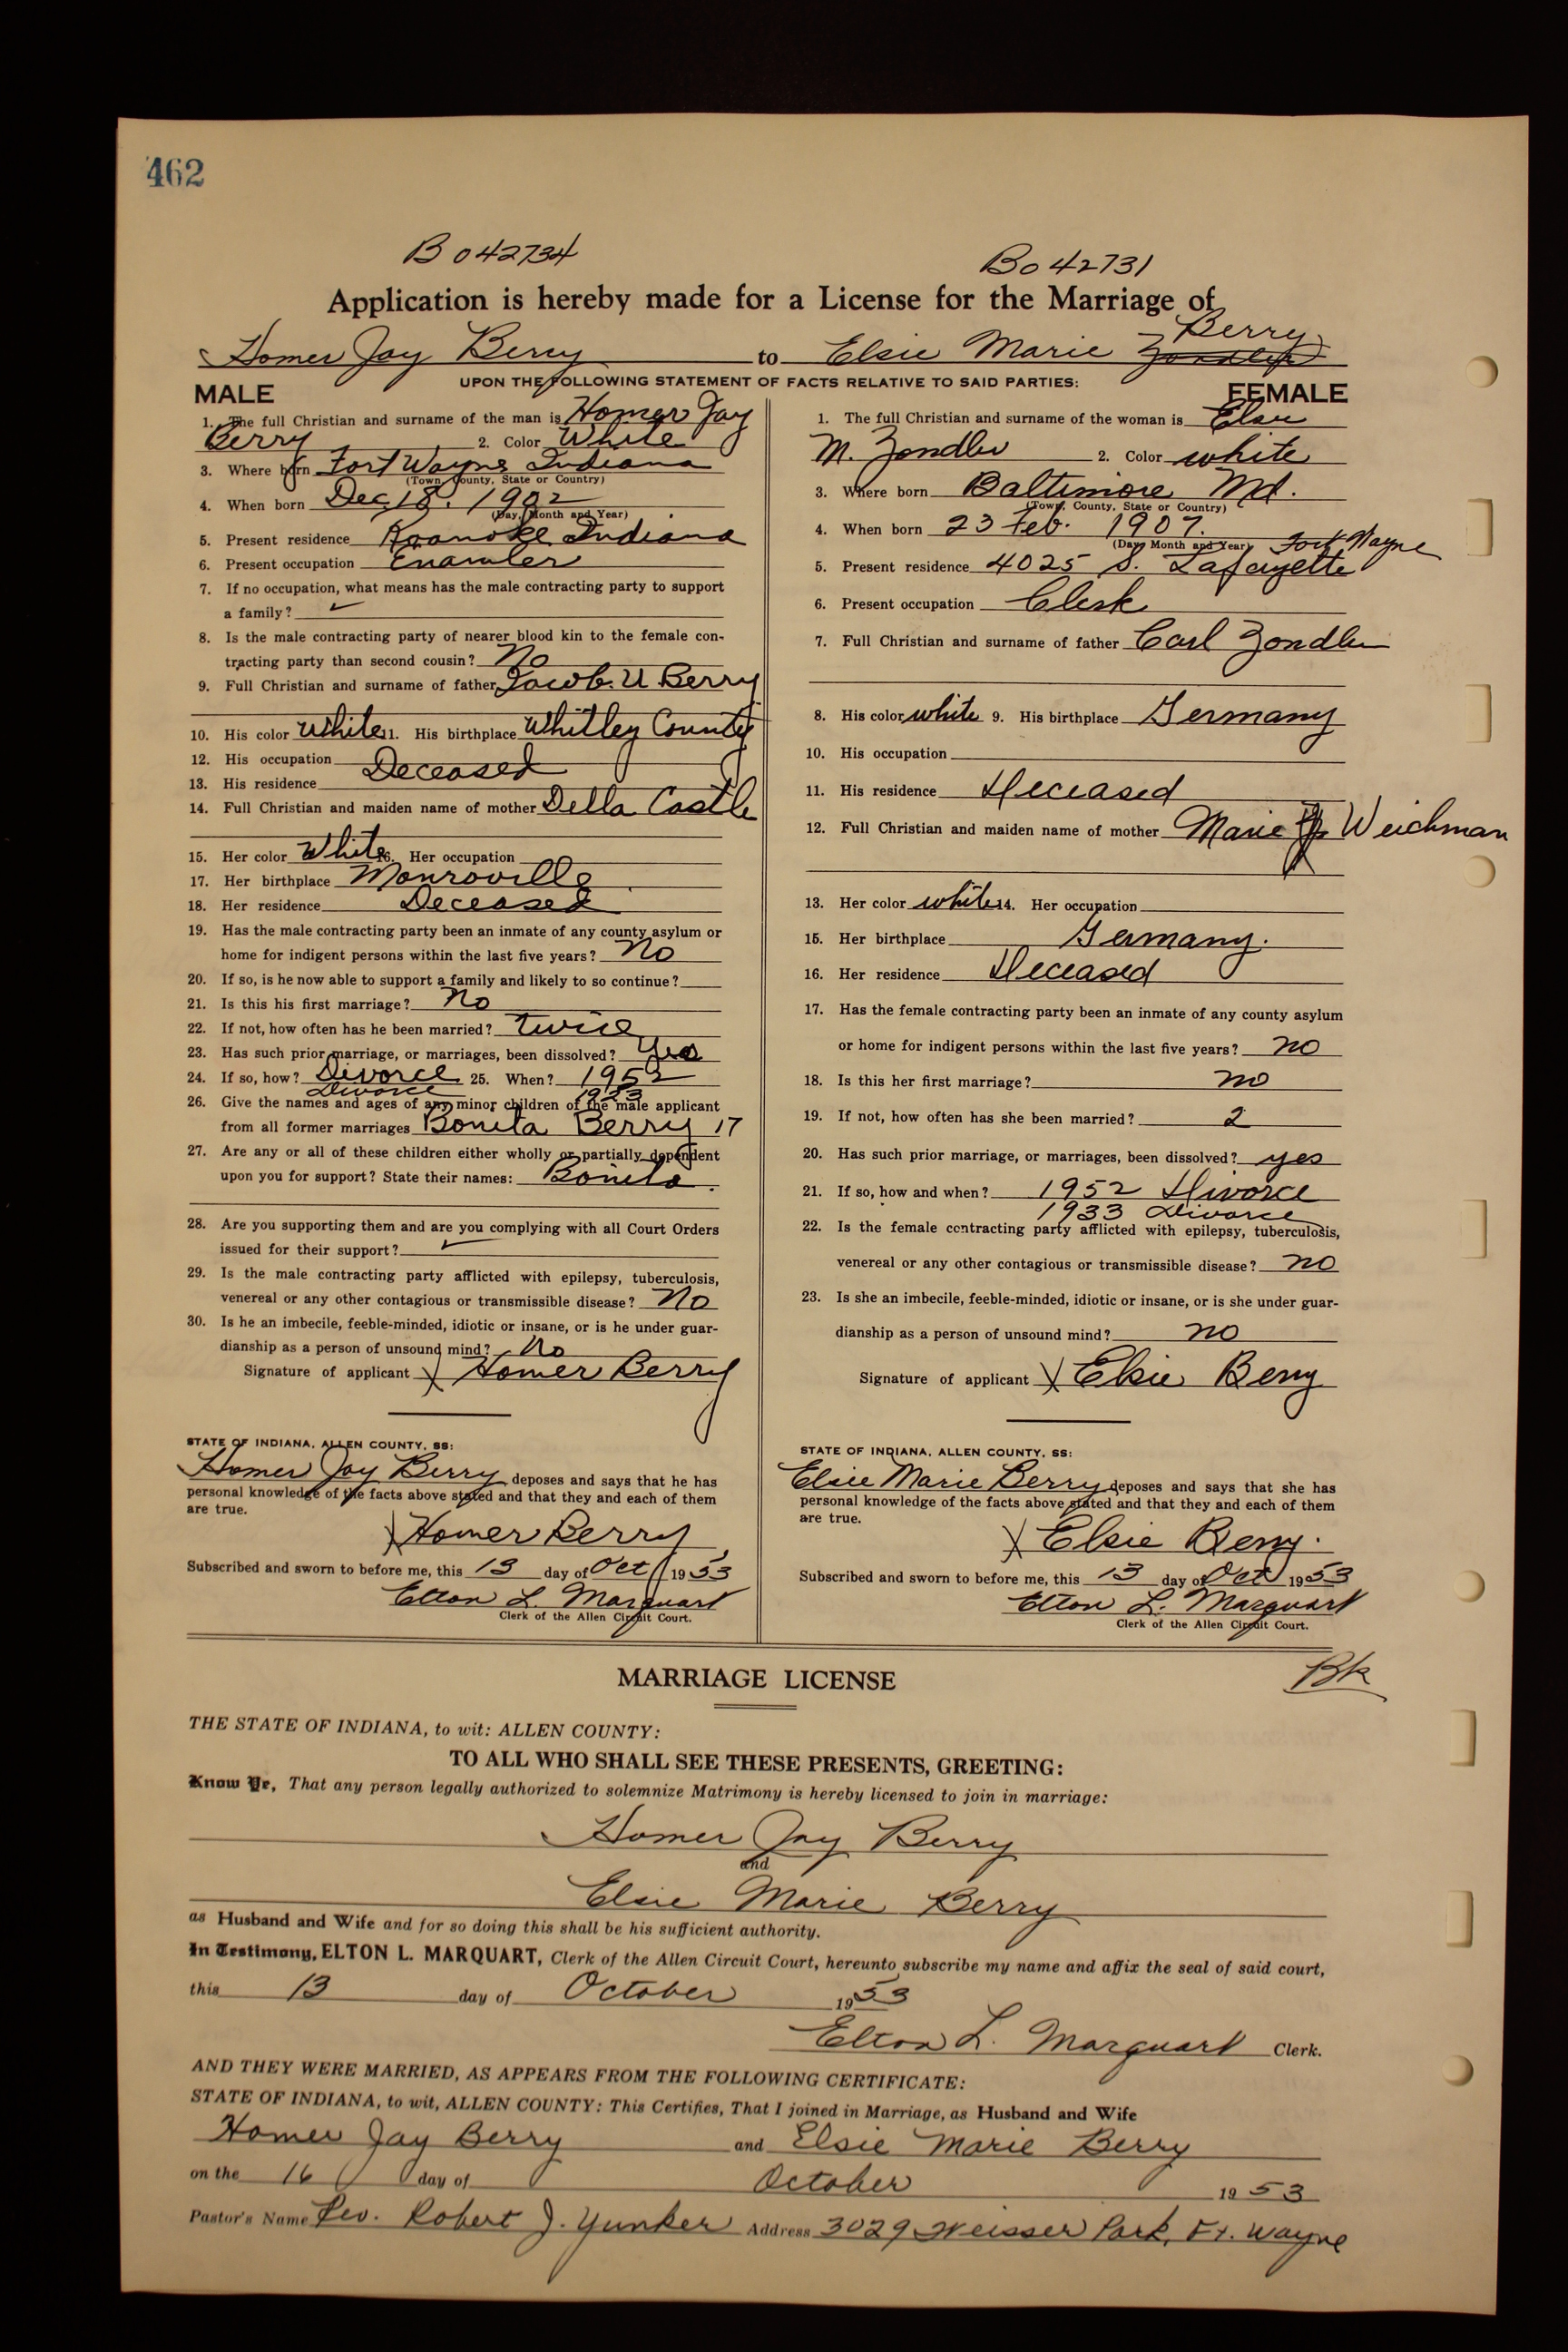 462
B 042734
B042731
Application is hereby made for a License for the Marriage of
Berry
Homer Jay Berry to Elsie Marie Zondler
UPON THE FOLLOWING STATEMENT OF FACTS RELATIVE TO SAID PARTIES:
MALE
1. The full Christian and surname of the man is Homer Jay
Berry 2. Color White
3. Where born Fort Wayne Indiana
(Town, County, State or Country)
4. When born Dec 18, 1902
(Day, Month and Year)
5. Present residence Roanoke Indiana
6. Present occupation Enamler
7. If no occupation, what means has the male contracting party to support
a family? ✓
8. Is the male contracting party of nearer blood kin to the female con-
tracting party than second cousin? No
9. Full Christian and surname of father Jacob. U Berry
10. His color White 11. His birthplace Whitley County
12. His occupation
Deceased
13. His residence
14. Full Christian and maiden name of mother Della Castle
15. Her color White 16. Her occupation
17. Her birthplace Monroville
18. Her residence Deceased
19. Has the male contracting party been an inmate of any county asylum or
home for indigent persons within the last five years? No
20. If so, is he now able to support a family and likely to so continue?
21. Is this his first marriage? No
22. If not, how often has he been married? twice
23. Has such prior marriage, or marriages, been dissolved? Yes
24. If so, how? Divorce 25. When? 1952
Divorce 1933
26. Give the names and ages of any minor children of the male applicant
from all former marriages Bonita Berry 17
27. Are any or all of these children either wholly or partially dependent
upon you for support? State their names: Bonita.
28. Are you supporting them and are you complying with all Court Orders
issued for their support? ✓
29. Is the male contracting party afflicted with epilepsy, tuberculosis,
venereal or any other contagious or transmissible disease? No
30. Is he an imbecile, feeble-minded, idiotic or insane, or is he under guar-
dianship as a person of unsound mind? No
Signature of applicant X Homer Berry
STATE OF INDIANA, ALLEN COUNTY, SS:
Homer Jay Berry deposes and says that he has
personal knowledge of the facts above stated and that they and each of them
are true.
X Homer Berry
Subscribed and sworn to before me, this 13 day of Oct 1953
Elton L. Marquart
Clerk of the Allen Circuit Court.
FEMALE
1. The full Christian and surname of the woman is Elsie
M. Zondler 2. Color white
3. Where born Baltimore Md.
(Town, County, State or Country)
4. When born 23 Feb. 1907.
(Day, Month and Year) Fort Wayne
5. Present residence 4025 S. Lafayette
6. Present occupation Clerk
7. Full Christian and surname of father Carl Zondler
8. His color white 9. His birthplace Germany
10. His occupation
11. His residence Deceased
12. Full Christian and maiden name of mother Marie Weichman
13. Her color white 14. Her occupation
15. Her birthplace Germany.
16. Her residence Deceased
17. Has the female contracting party been an inmate of any county asylum
or home for indigent persons within the last five years? no
18. Is this her first marriage? no
19. If not, how often has she been married? 2
20. Has such prior marriage, or marriages, been dissolved? yes
21. If so, how and when? 1952 Divorce
1933 Divorce
22. Is the female contracting party afflicted with epilepsy, tuberculosis,
venereal or any other contagious or transmissible disease? no
23. Is she an imbecile, feeble-minded, idiotic or insane, or is she under guar-
dianship as a person of unsound mind? no
Signature of applicant X Elsie Berry
STATE OF INDIANA, ALLEN COUNTY, SS:
Elsie Marie Berry deposes and says that she has
personal knowledge of the facts above stated and that they and each of them
are true.
X Elsie Berry.
Subscribed and sworn to before me, this 13 day of Oct 1953
Elton L. Marquart
Clerk of the Allen Circuit Court.
Bk
MARRIAGE LICENSE
THE STATE OF INDIANA, to wit: ALLEN COUNTY:
TO ALL WHO SHALL SEE THESE PRESENTS, GREETING:
Know Ye, That any person legally authorized to solemnize Matrimony is hereby licensed to join in marriage:
Homer Jay Berry
and
Elsie Marie Berry
as Husband and Wife and for so doing this shall be his sufficient authority.
In Testimony, ELTON L. MARQUART, Clerk of the Allen Circuit Court, hereunto subscribe my name and affix the seal of said court,
this 13 day of October 1953
Elton L. Marquart Clerk.
AND THEY WERE MARRIED, AS APPEARS FROM THE FOLLOWING CERTIFICATE:
STATE OF INDIANA, to wit, ALLEN COUNTY: This Certifies, That I joined in Marriage, as Husband and Wife
Homer Jay Berry and Elsie Marie Berry
on the 16 day of October 1953
Pastor's Name Rev. Robert J. Yunker Address 3029 Weisser Park, Ft. Wayne